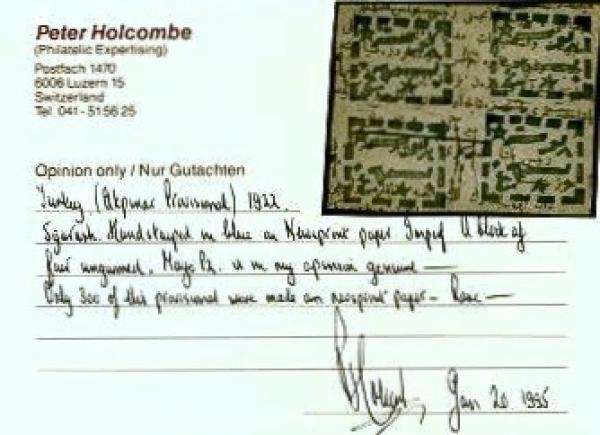 Peter Holcombe
(Philatelic Expertising)
Postfach 1470
6006 Luzern 15
Switzerland
Tel. 041 - 51 56 25
Opinion only / Nur Gutachten
Turkey (Akpinar Provisional) 1922.
Handstamped in blue on Newsprint paper Imperf block of
four ungummed. is in my opinion genuine —
Only 300 of this provisional were made on newsprint paper — Rare —
Jan 20 1995